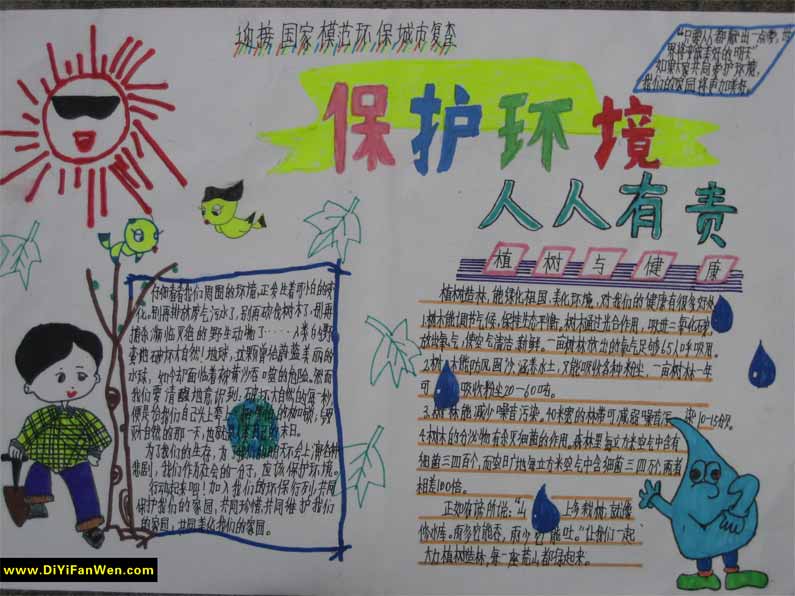 迎接国家模范环保城市复查
"只要人人都献出一点爱,世
界将变成美好的明天"
如果人人共同爱护环境,
我们的家园将更加美好。
保护环境
人人有责
植树与健康
仔细看看我们周围的环境,正发生着可怕的变
化。别再排放废气污水了,别再砍伐树木了,别再
捕杀濒临灭绝的野生动物了……人类的野
球,如今却面临着被黄沙吞噬的危险。然而
我们要清醒地意识到:破坏大自然的每一秒
便是给我们自己头上套上
为了我们的生存,为
悲剧,我们作为社会的一份子,应该保护环境。
行动起来吧!加入我们的环保行列,共同
保护我们的家园,共同珍惜,共同维护我们
的家园,共同美化我们的家园。
植树造林,能绿化祖国,美化环境,对我们的健康有很多好处
1.树木能调节气候,保持生态平衡。树木通过光合作用,吸进二氧化碳,
放出氧气,使空气清洁、新鲜。一亩树林放出的氧气足够65人呼吸用。
2.树木能防风固沙,涵养水土,又能吸收各种粉尘,一亩树林一年
可 吸收粉尘20—60吨。
3.树林能减少噪音污染。40米宽的林带可减弱噪音污染10-15分贝。
4.树木的分泌物有杀灭细菌的作用。森林里每立方米空气中含有
细菌三四百个,而空旷广地每立方米空气中含细菌三四万个,两者
相差100倍。
正如有谚所说:"山 上多栽树,就像
修水库。雨多它能吞,雨少它能吐。"让我们一起
大力植树造林,每一座荒山都绿起来。
www.DiYiFanWen.com